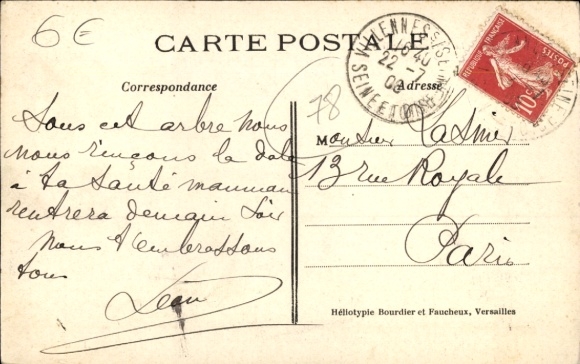 6€
CARTE POSTALE
VILLENNES S/SEINE
16 40
22 - 7
08
SEINE ET OISE
REPUBLIQUE FRANÇAISE
POSTES
10c
Correspondance
Adresse
78
Sous cet arbre nous
nous rinçons la dale
à ta santé maman
rentrera demain soir
nous t'embrassons
tous
Léon
M onsieur
13 rue Royale
Paris
Héliotypie Bourdier et Faucheux, Versailles